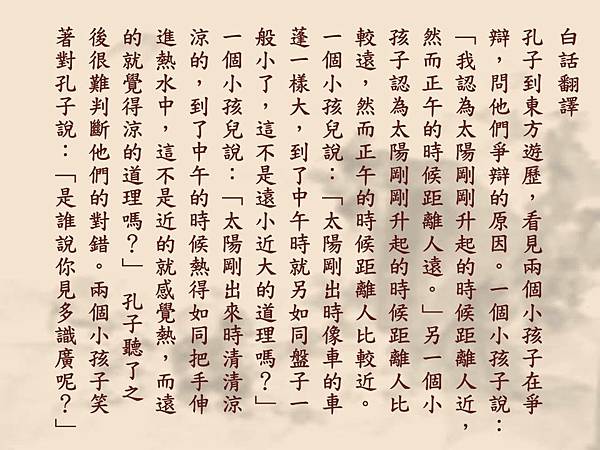 白話翻譯
孔子到東方遊歷，看見兩個小孩子在爭
辯，問他們爭辯的原因。一個小孩子說：
「我認為太陽剛剛升起的時候距離人近，
然而正午的時候距離人遠。」另一個小
孩子認為太陽剛剛升起的時候距離人比
較遠，然而正午的時候距離人比較近。
一個小孩兒說：「太陽剛出時像車的車
蓬一樣大，到了中午時就另如同盤子一
般小了，這不是遠小近大的道理嗎？」
一個小孩兒說：「太陽剛出來時清清涼
涼的，到了中午的時候熱得如同把手伸
進熱水中，這不是近的就感覺熱，而遠
的就覺得涼的道理嗎？」 孔子聽了之
後很難判斷他們的對錯。兩個小孩子笑
著對孔子說：「是誰說你見多識廣呢？」